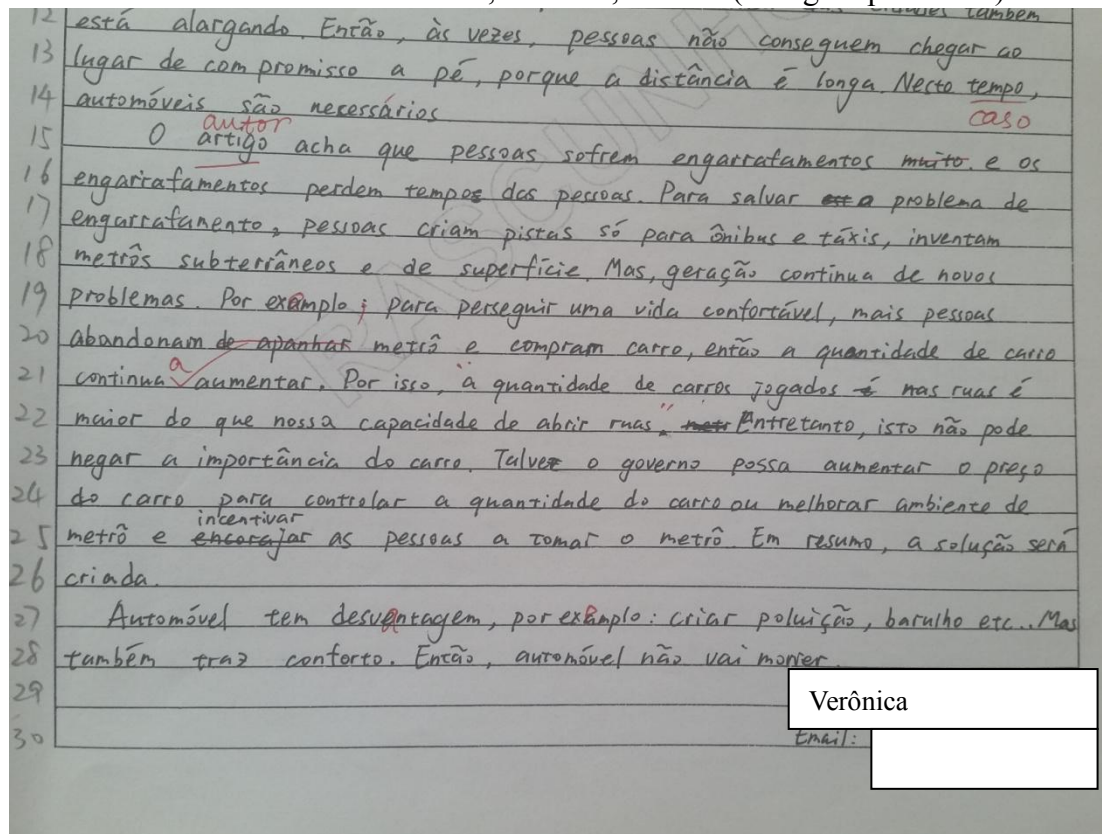 12 está alargando. Então, às vezes, pessoas não conseguem chegar ao
13 lugar de compromisso a pé, porque a distância é longa. Nesto tempo,
caso
14 automóveis são necessários
autor
15 O artigo acha que pessoas sofrem engarrafamentos muito. e os
16 engarrafamentos perdem tempos das pessoas. Para salvar problema de
17 engarrafamento, pessoas criam pistas só para ônibus e táxis, inventam
18 metrôs subterrâneos e de superfície. Mas, geração continua de novos
19 problemas. Por exemplo; para perseguir uma vida confortável, mais pessoas
20 abandonam de apanhar metrô e compram carro, então a quantidade de carro
a
21 continua aumentar. Por isso, "a quantidade de carros jogados é nas ruas é
22 maior do que nossa capacidade de abrir ruas". Entretanto, isto não pode
23 negar a importância do carro. Talvez o governo possa aumentar o preço
24 do carro para controlar a quantidade do carro ou melhorar ambiente de
incentivar
25 metrô e encorajar as pessoas a tomar o metrô. Em resumo, a solução será
26 criada.
27 Automóvel tem desvantagem, por exemplo: criar poluição, barulho etc.. Mas
28 também traz conforto. Então, automóvel não vai morrer.
29
Verônica
30 Email:
RASCUNHO